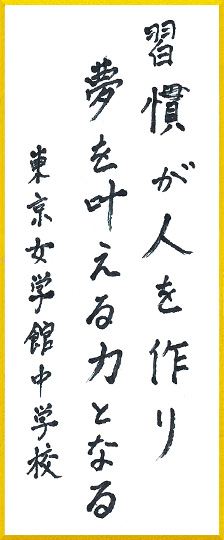 習慣が人を作り
夢を叶える力となる
東京女学館中学校